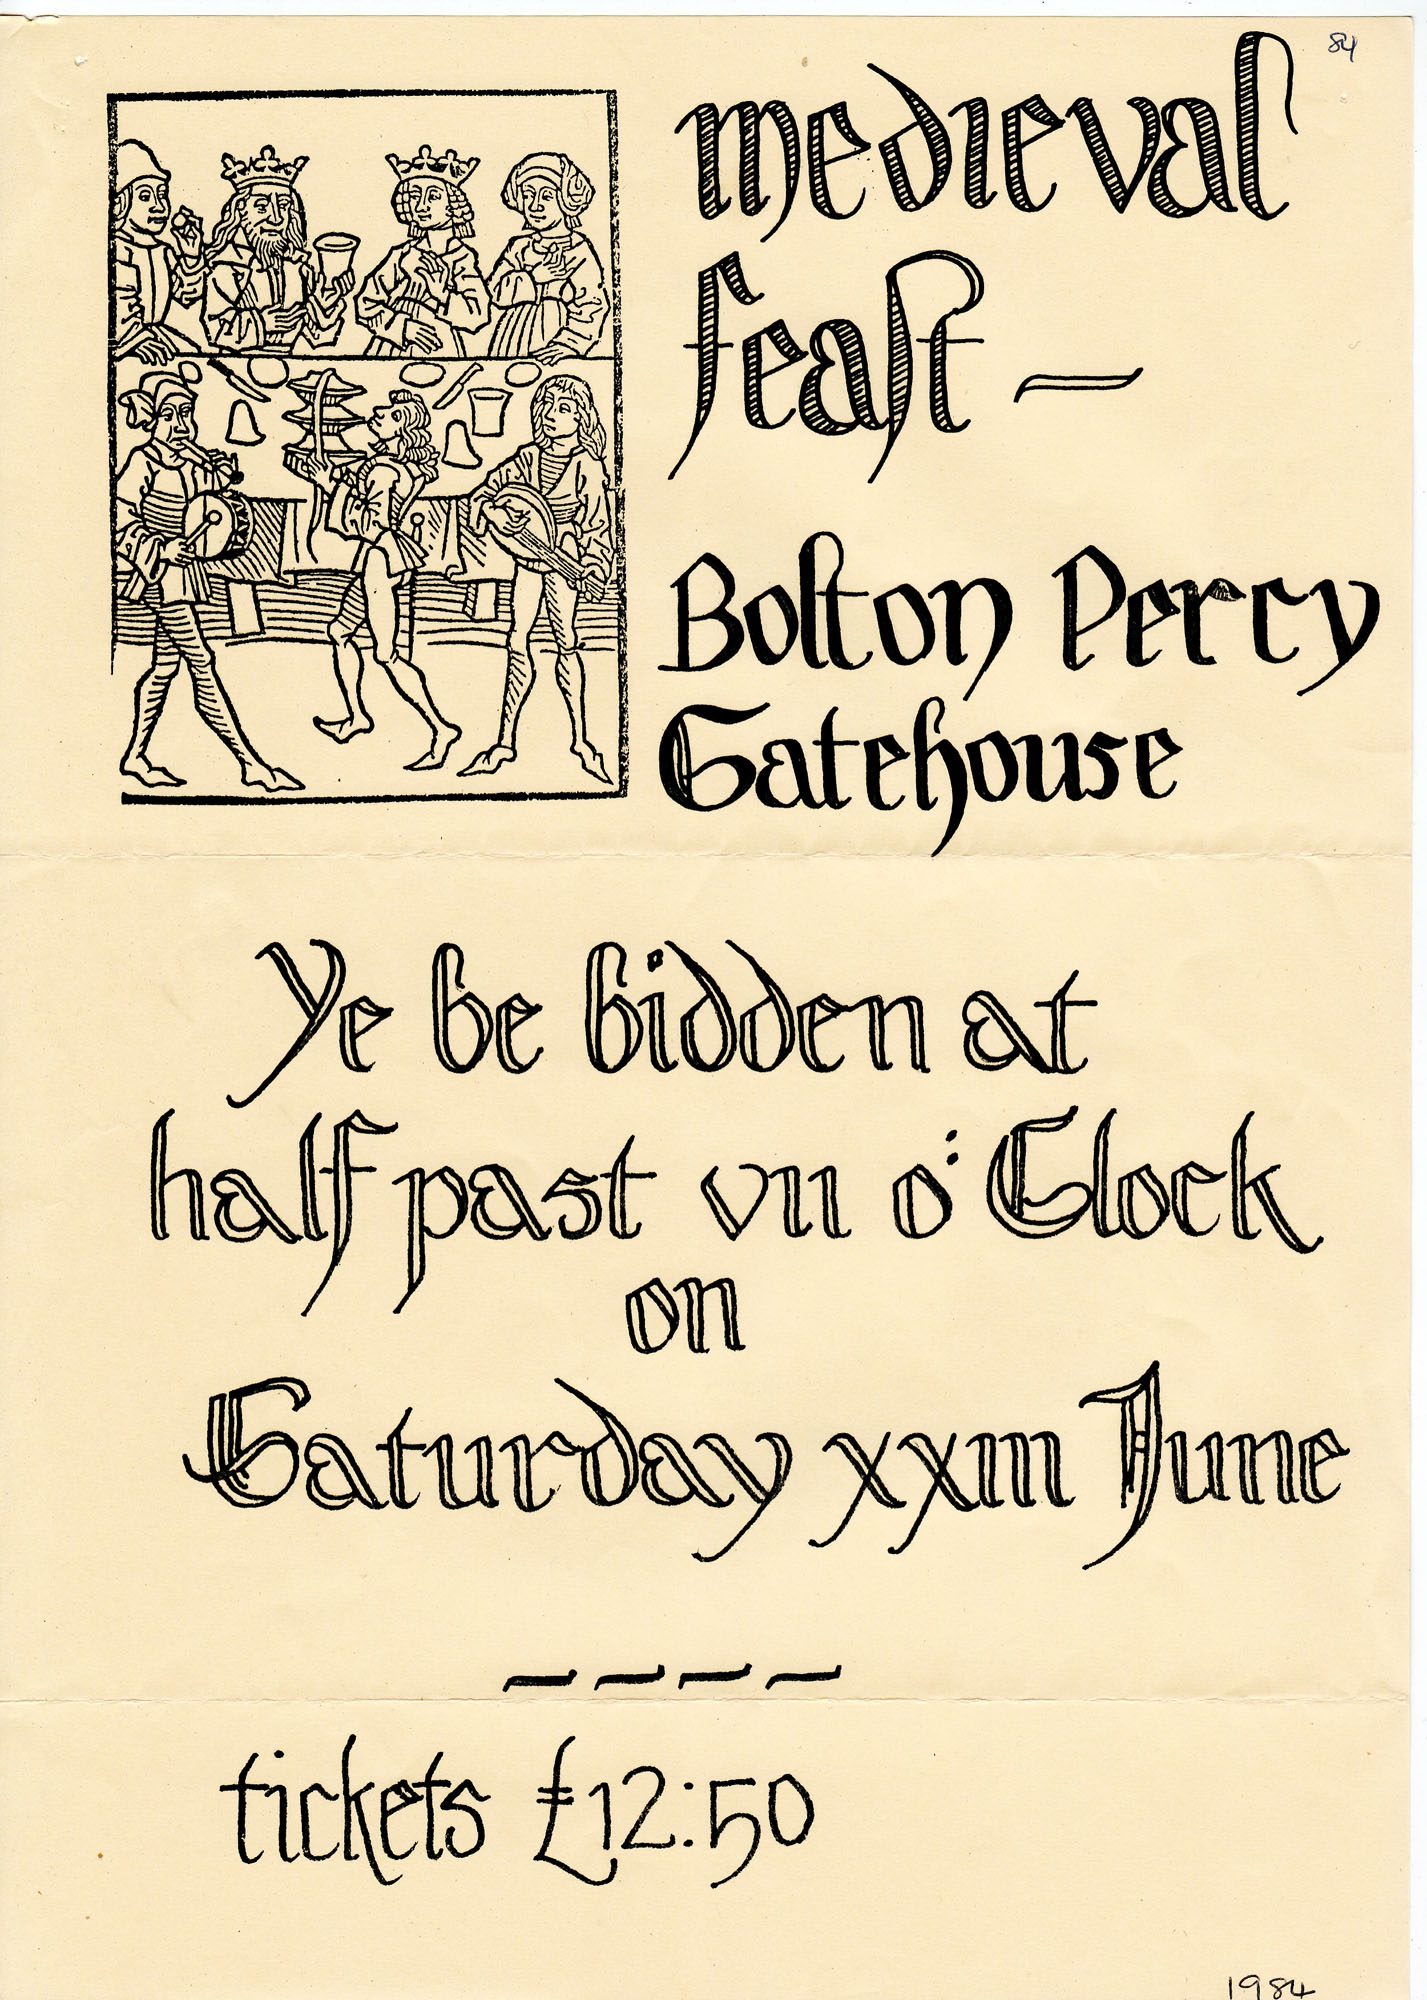 84
medieval
feast —
Bolton Percy
Gatehouse
Ye be bidden at
half past vii o'Clock
on
Saturday xxiii June
– – – –
tickets £12:50
1984